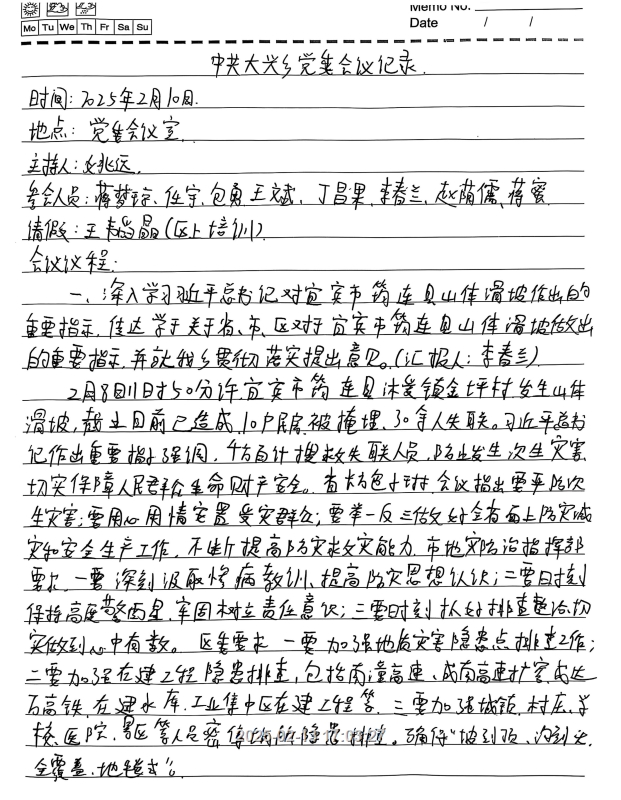 Memo No.
Mo Tu We Th Fr Sa Su
Date / /
中共大兴乡党委会议记录.
时间:2025年2月10日.
地点:党委会议室.
主持人:赵兆远.
参会人员:蒋梦琼、任宇、包勇、王斌、丁昌果、李春兰、赵荫儒、蒋蜜
请假:王晶(区上培训)
会议议程:
一、深入学习习近平总书记对宜宾市筠连县山体滑坡作出的
重要指示,传达学习关于省、市、区对于宜宾市筠连县山体滑坡做出
的重要指示,并就我乡贯彻落实提出意见。(汇报人:李春兰)
2月8日11日时50分许,宜宾市筠连县沐爱镇金坪村发生山体
滑坡,截止目前已造成10户民房被掩埋,30余人失联。习近平总书
记作出重要指示强调,千方百计搜救失联人员,防止发生次生灾害,
切实保障人民群众生命财产安全。省 会议指出要严防次
生灾害;要用心用情安置受灾群众;要举一反三做好全省面上防灾减
灾和安全生产工作,不断提高防灾救灾能力.市地灾防治指挥部
要求,一要深刻汲取惨痛教训、提高防灾思想认识;二要时刻
保持高度警觉,牢固树立责任意识;三要时刻抓好排查整治,切
实做到心中有数。区委要求 一要加强地质灾害隐患点排查工作;
二要加强在建工程隐患排查,包括内潼高速、成南高速扩容、成达
万高铁、在建水库、工业集中区在建工程等.三要加强城镇、村庄、学
校、医院、景区等人员密集场所隐患排查。确保"坡到顶、沟到头、
全覆盖、地毯式"。